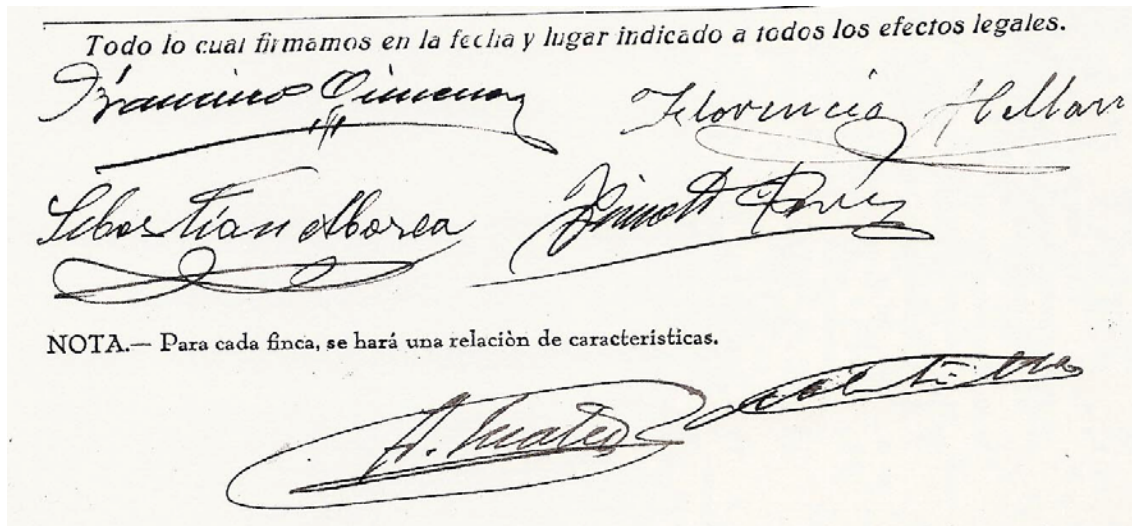 Todo lo cual firmamos en la fecha y lugar indicado a todos los efectos legales.
Francisco Gimenez Florencia
Sebastian
NOTA.— Para cada finca, se hará una relaciòn de caracteristicas.
A. Mateo